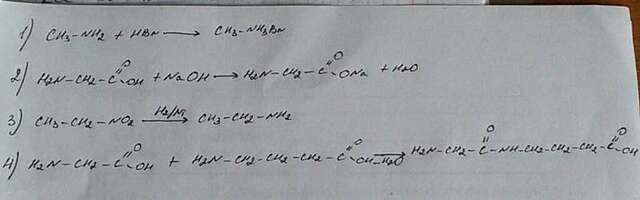 1) CH3-NH2 + HBr → CH3-NH3Br
2) H2N-CH2-C(=O)-OH + NaOH → H2N-CH2-C(=O)-ONa + H2O
3) CH3-CH2-NO2 —H2/Ni→ CH3-CH2-NH2
4) H2N-CH2-C(=O)-OH + H2N-CH2-CH2-CH2-C(=O)-OH —-H2O→ H2N-CH2-C(=O)-NH-CH2-CH2-CH2-C(=O)-OH